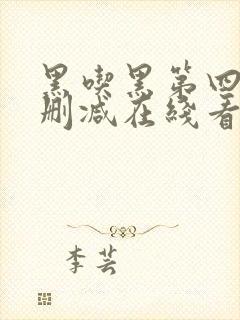 黑喫黑第四
删减在綫看
李芸